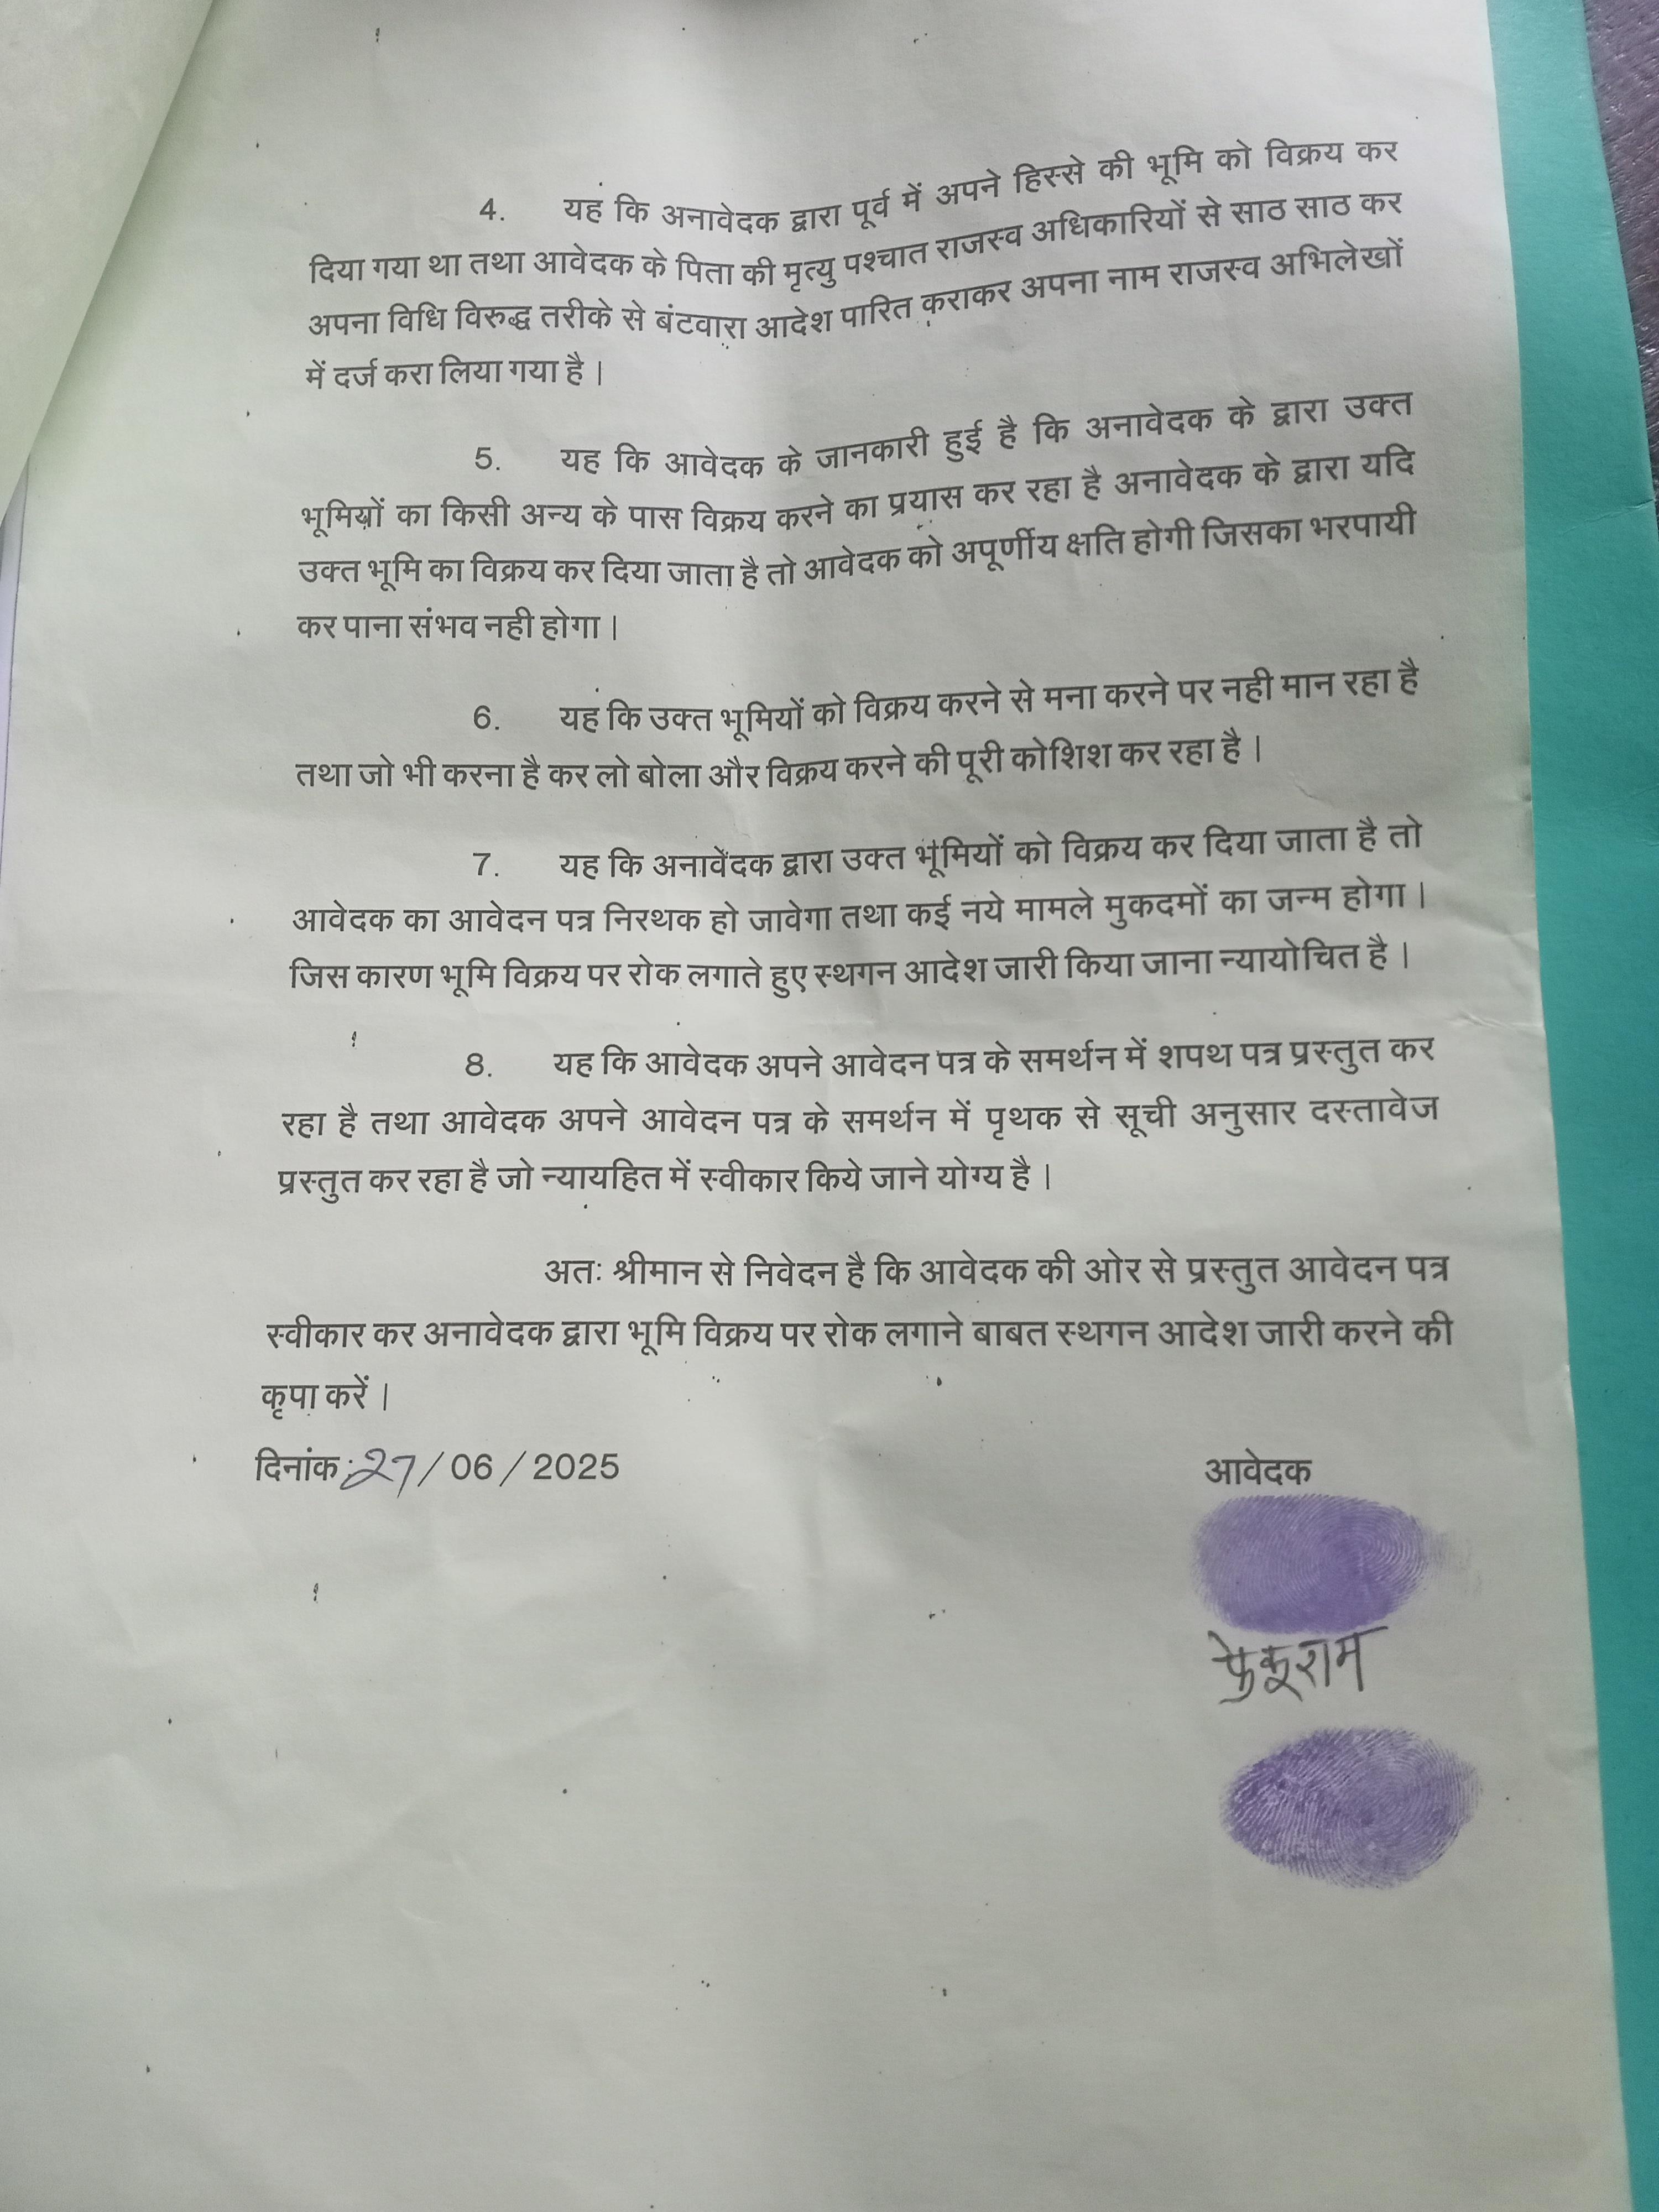 4. यह कि अनावेदक द्वारा पूर्व में अपने हिस्से की भूमि को विक्रय कर
दिया गया था तथा आवेदक के पिता की मृत्यु पश्चात राजस्व अधिकारियों से साठ साठ कर
अपना विधि विरुद्ध तरीके से बंटवारा आदेश पारित कराकर अपना नाम राजस्व अभिलेखों
में दर्ज करा लिया गया है।
5. यह कि आवेदक के जानकारी हुई है कि अनावेदक के द्वारा उक्त
भूमियों का किसी अन्य के पास विक्रय करने का प्रयास कर रहा है अनावेदक के द्वारा यदि
उक्त भूमि का विक्रय कर दिया जाता है तो आवेदक को अपूर्णीय क्षति होगी जिसका भरपायी
कर पाना संभव नही होगा।
6. यह कि उक्त भूमियों को विक्रय करने से मना करने पर नही मान रहा है
तथा जो भी करना है कर लो बोला और विक्रय करने की पूरी कोशिश कर रहा है।
7. यह कि अनावेदक द्वारा उक्त भूमियों को विक्रय कर दिया जाता है तो
आवेदक का आवेदन पत्र निरथक हो जावेगा तथा कई नये मामले मुकदमों का जन्म होगा।
जिस कारण भूमि विक्रय पर रोक लगाते हुए स्थगन आदेश जारी किया जाना न्यायोचित है।
8. यह कि आवेदक अपने आवेदन पत्र के समर्थन में शपथ पत्र प्रस्तुत कर
रहा है तथा आवेदक अपने आवेदन पत्र के समर्थन में पृथक से सूची अनुसार दस्तावेज
प्रस्तुत कर रहा है जो न्यायहित में स्वीकार किये जाने योग्य है।
अतः श्रीमान से निवेदन है कि आवेदक की ओर से प्रस्तुत आवेदन पत्र
स्वीकार कर अनावेदक द्वारा भूमि विक्रय पर रोक लगाने बाबत स्थगन आदेश जारी करने की
कृपा करें।
दिनांक:27/06/2025 आवेदक
फेकूराम